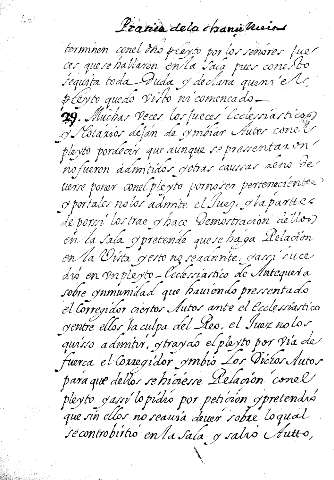 Practica de la chancilleria
terminen con el dho pleyto por los señores Jue-
ces, que se hallaron en la Sala pues con esto
se quita toda Duda, y declara quien el
pleyto quedo visto ni comenzado
29. Muchas veces los Jueces Ecclesiasticos
y Notarios dejan de ymbiar Autos con el
pleyto por decir que aunque se presentaron
no fueron admitidos, y otras caussas a eno de
verse poner con el pleyto por no ser pertenecientes
y por tales no los admite el Juez, y la parte
de por si los trae, y hace Demostracion de ellos
en la Sala, y pretende que se haga Relacion
en la Vista, y esto no se admite, y assi suce
dio en un pleyto Ecclesiastico de Antequera
sobre ynmunidad que haviendo pressentado
el Corregidor ciertos Autos ante el Ecclesiastico
y entre ellos la culpa del Reo, el Juez no los
quisso admitir, y traydo el pleyto por via de
fuerca el Corregidor ymbio Los Dichos Autos
para que de ellos se hiciesse Relacion con el
pleyto y assi lo pidio por peticion, y pretendio
que sin ellos no se avia de ver sobre lo qual
se controbirtio en la Sala y salio Autto,